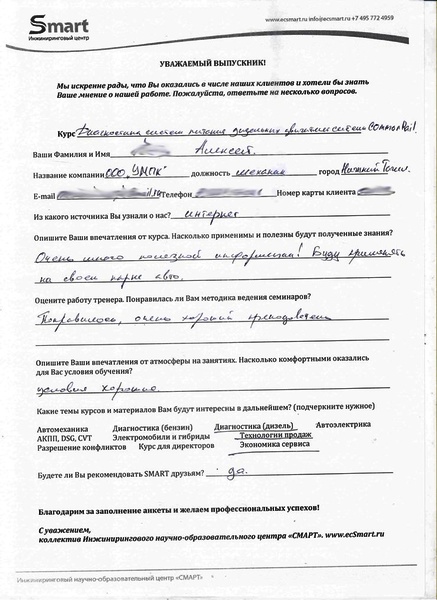 Smart
Инжиниринговый центр
www.ecsmart.ru info@ecsmart.ru +7 495 772 4959
УВАЖАЕМЫЙ ВЫПУСКНИК!
Мы искренне рады, что Вы оказались в числе наших клиентов и хотели бы знать
Ваше мнение о нашей работе. Пожалуйста, ответьте на несколько вопросов.
Курс Диагностика систем питания дизельных двигателей система Common Rail
Ваши Фамилия и Имя Алексей.
Название компании ООО "УМПК" должность механик город Нижний Тагил
E-mail Телефон Номер карты клиента
Из какого источника Вы узнали о нас? интернет
Опишите Ваши впечатления от курса. Насколько применимы и полезны будут полученные знания?
Очень много полезной информации! Буду применять
на своем парке авто.
Оцените работу тренера. Понравилась ли Вам методика ведения семинаров?
Понравилось, очень хороший преподователь
Опишите Ваши впечатления от атмосферы на занятиях. Насколько комфортными оказались
для Вас условия обучения?
условия хорошие.
Какие темы курсов и материалов Вам будут интересны в дальнейшем? (подчеркните нужное)
Автомеханика Диагностика (бензин) Диагностика (дизель) Автоэлектрика
АКПП, DSG, CVT Электромобили и гибриды Технологии продаж
Разрешение конфликтов Курс для директоров Экономика сервиса
Будете ли Вы рекомендовать SMART друзьям? да.
Благодарим за заполнение анкеты и желаем профессиональных успехов!
С уважением,
коллектив Инжинирингового научно-образовательного центра «СМАРТ». www.ecSmart.ru
Инжиниринговый научно-образовательный центр «СМАРТ»